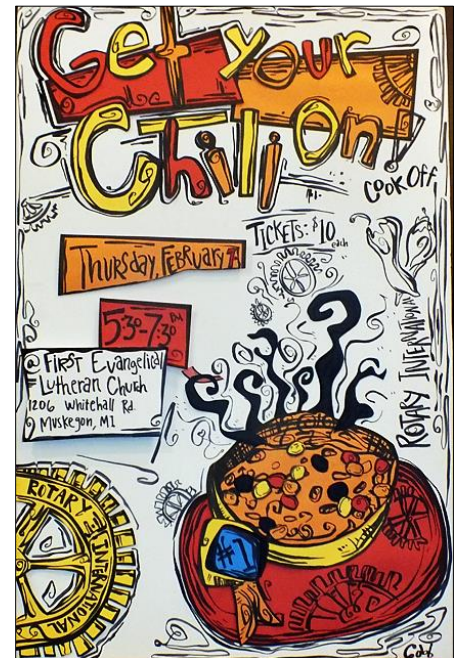 Get your
Chili On!
Cook Off
TICKETS: $10 each
Thursday, February
5:30-7:30 PM
@ First Evangelical
Lutheran Church
1206 Whitehall Rd.
Muskegon, MI
ROTARY INTERNATIONAL
ROTARY INTERNATIONAL
#1